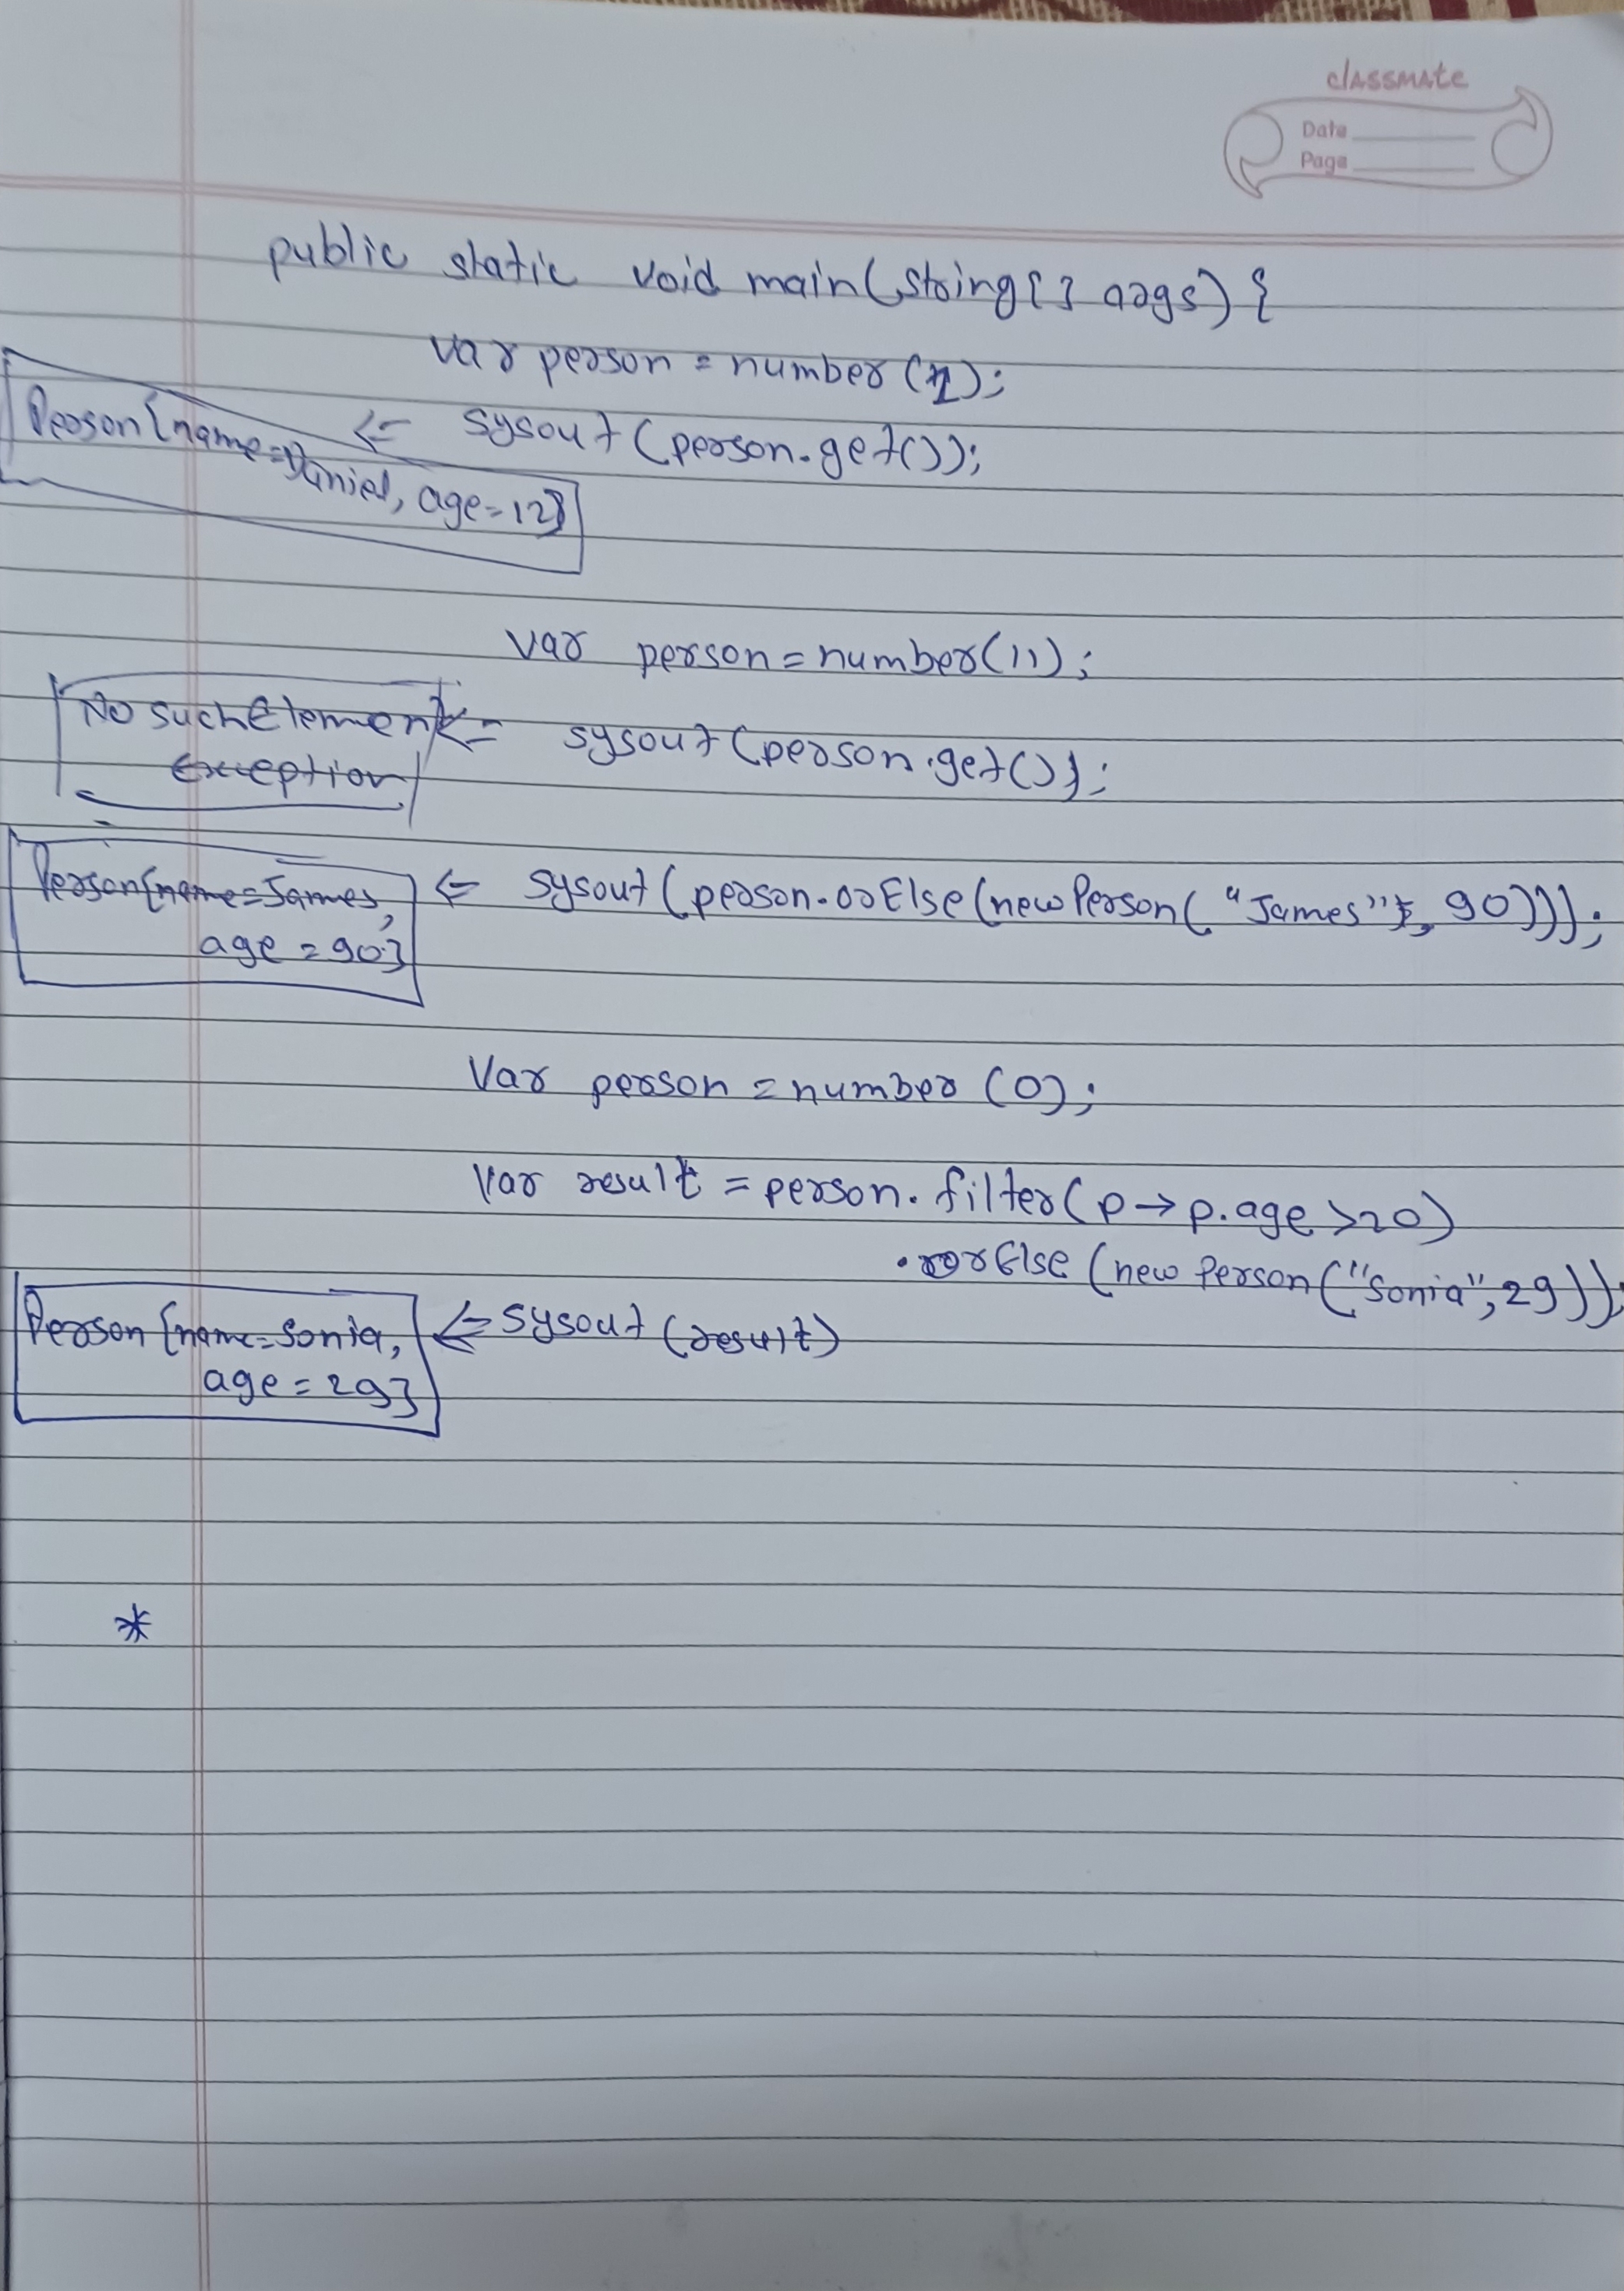 classmate
Date
Page
public static void main(String[] args) {
var person = number(1);
Person{name=Daniel, age=12} <= sysout(person.get());
var person = number(11);
NoSuchElement <= sysout(person.get());
Exception
Person{name=James, <= sysout(person.orElse(new Person("James", 90)));
age = 90}
Var person = number(0);
Var result = person.filter(p → p.age >20)
.orElse(new Person("Sonia", 29));
Person{name=Sonia, <= sysout(result)
age = 29}
*